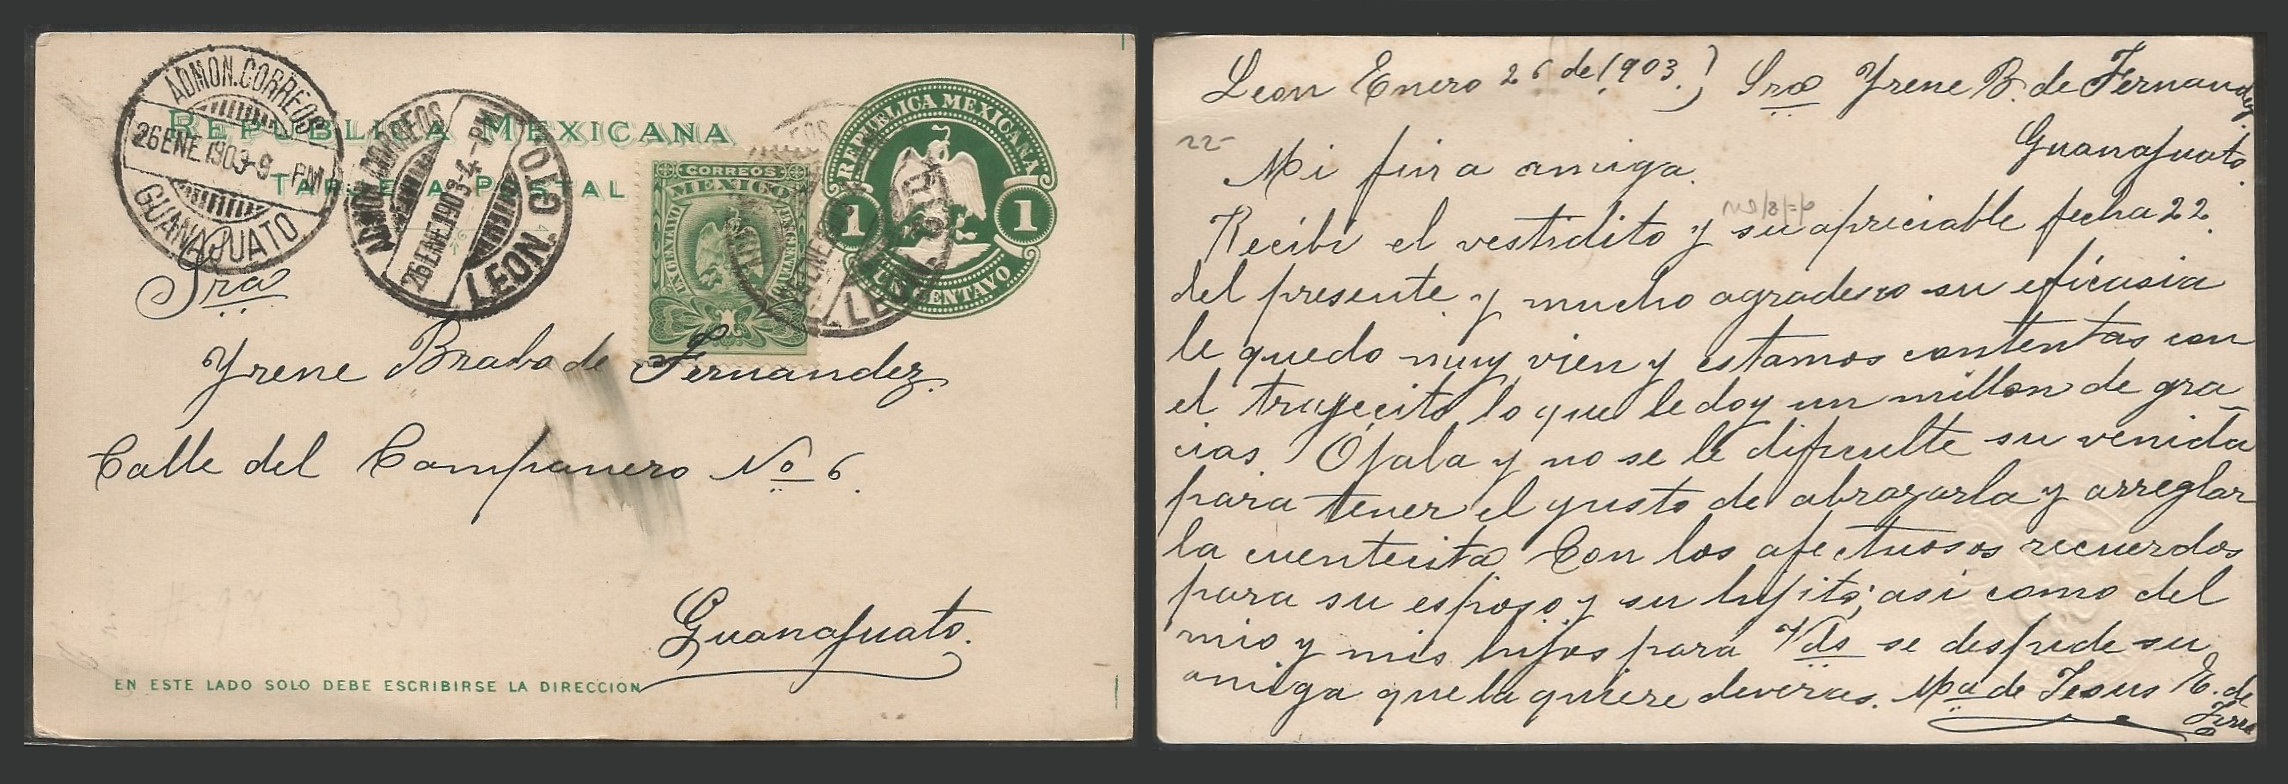 REPUBLICA MEXICANA
TARJETA POSTAL
ADMON. CORREOS
26 ENE. 1903-9 - PM
GUANAJUATO
ADMON. CORREOS
26 ENE. 1903-4 - PM
LEON. GTO
CORREOS
MEXICO
UN CENTAVO
UN CENTAVO
1
REPUBLICA MEXICANA
1 1
UN CENTAVO
LEON.
Sra
Yrene Brabo de Fernandez.
Calle del Campanero No 6.
Guanajuato.
EN ESTE LADO SOLO DEBE ESCRIBIRSE LA DIRECCION
Leon Enero 26 de 1903.) Sra Yrene B. de Fernandez
Guanajuato.
22-
Mi fina amiga.
Recibi el vestidito y su apreciable fecha 22.
del presente y mucho agradesco su eficasia
le quedo muy vien y estamos contentas con
el trajecito lo que le doy un millon de gra
cias. Ojala y no se le dificulte su venida
para tener el gusto de abrazarla y arreglar
la cuentecita Con los afectuosos recuerdos
para su esposo y su hijito; asi como del
mio y mis hijos para Vds se despide su
amiga que la quiere deveras. Ma de Jesus E. de